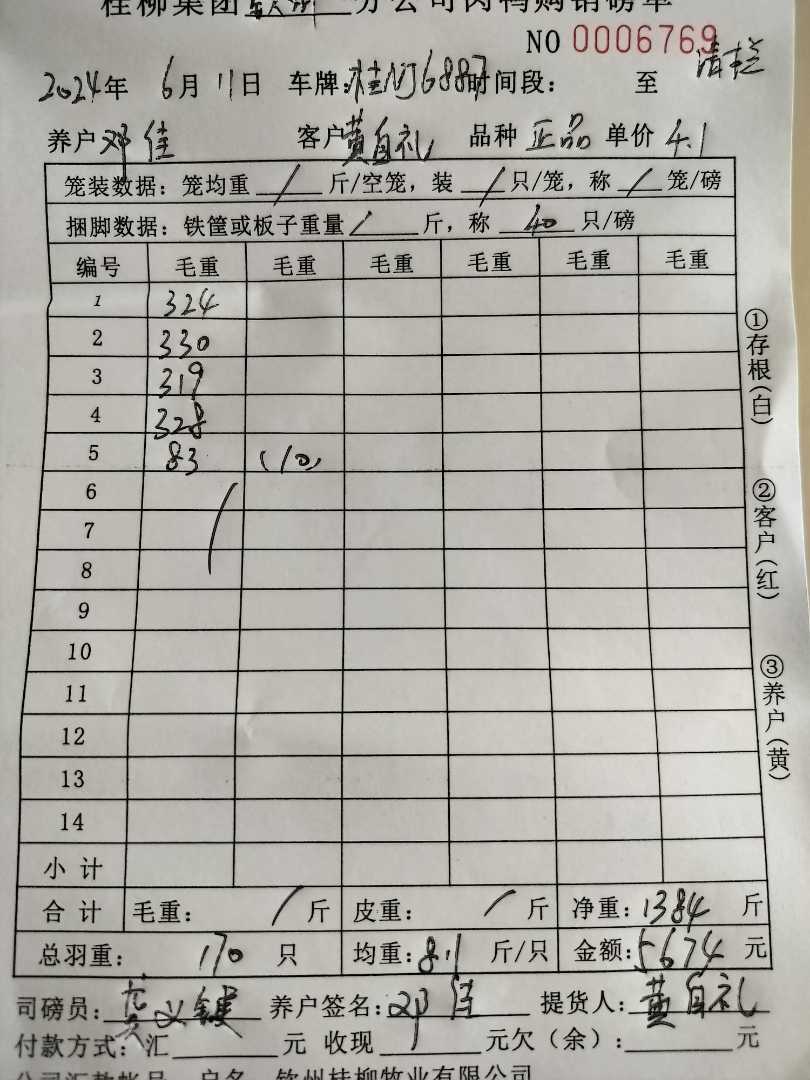 桂柳集团 分公司肉鸭购销磅单
NO 0006769
清栏
2024年 6月 11日 车牌:桂NJ6887 时间段: 至
养户 邓佳 客户 黄自礼 品种 正品 单价 4.1
笼装数据: 笼均重 / 斤/空笼, 装 / 只/笼, 称 / 笼/磅
捆脚数据: 铁筐或板子重量 / 斤, 称 40 只/磅
编号 毛重 毛重 毛重 毛重 毛重 毛重
1 324
2 330
3 319
4 328
5 83 (10)
6
7
8
9
10
11
12
13
14
小计
合计 毛重: / 斤 皮重: / 斤 净重: 1384 斤
总羽重: 170 只 均重: 8.1 斤/只 金额: 5674 元
司磅员: 养户签名: 邓佳 提货人: 黄自礼
付款方式: 汇 元 收现 元欠(余): 元
公司汇款帐号 户名 钦州桂柳牧业有限公司
①存根(白)
②客户(红)
③养户(黄)